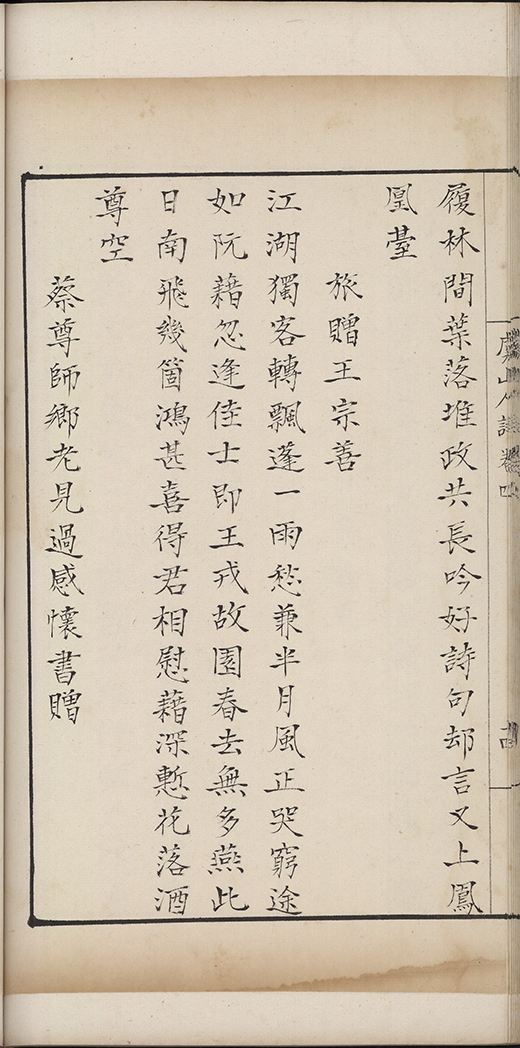 履林間葉落堆政共長吟好詩句却言又上鳳
凰臺
旅贈王宗善
江湖獨客轉飄蓬一雨愁兼半月風正哭窮途
如阮藉忽逢佳士即王戎故園春去無多燕此
日南飛幾箇鴻甚喜得君相慰藉深慙花落酒
尊空
蔡尊師鄉老見過感懷書贈